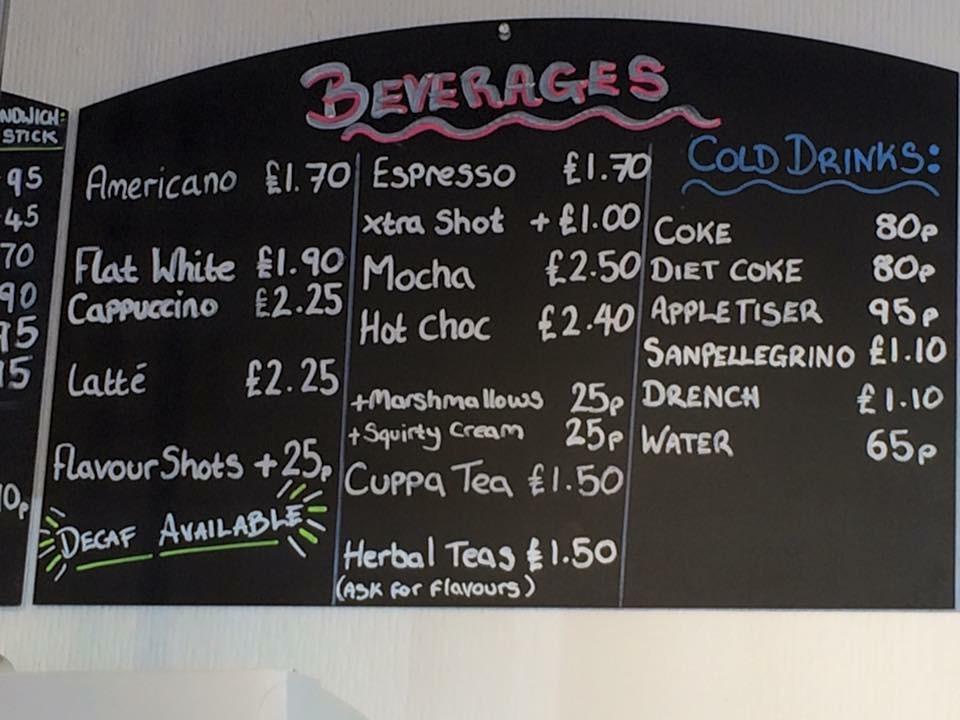 BEVERAGES
NDWICH:
STICK
95
45
70
90
15
Americano £1.70
Flat White £1.90
Cappuccino £2.25
Latté £2.25
Flavour Shots +25p
DECAF AVAILABLE
Espresso £1.70
xtra Shot + £1.00
Mocha £2.50
Hot Choc £2.40
+Marshmallows 25p
+Squirty Cream 25p
Cuppa Tea £1.50
Herbal Teas £1.50
(Ask for flavours)
COLD DRINKS:
COKE 80p
DIET COKE 80p
APPLETISER 95p
SANPELLEGRINO £1.10
DRENCH £1.10
WATER 65p